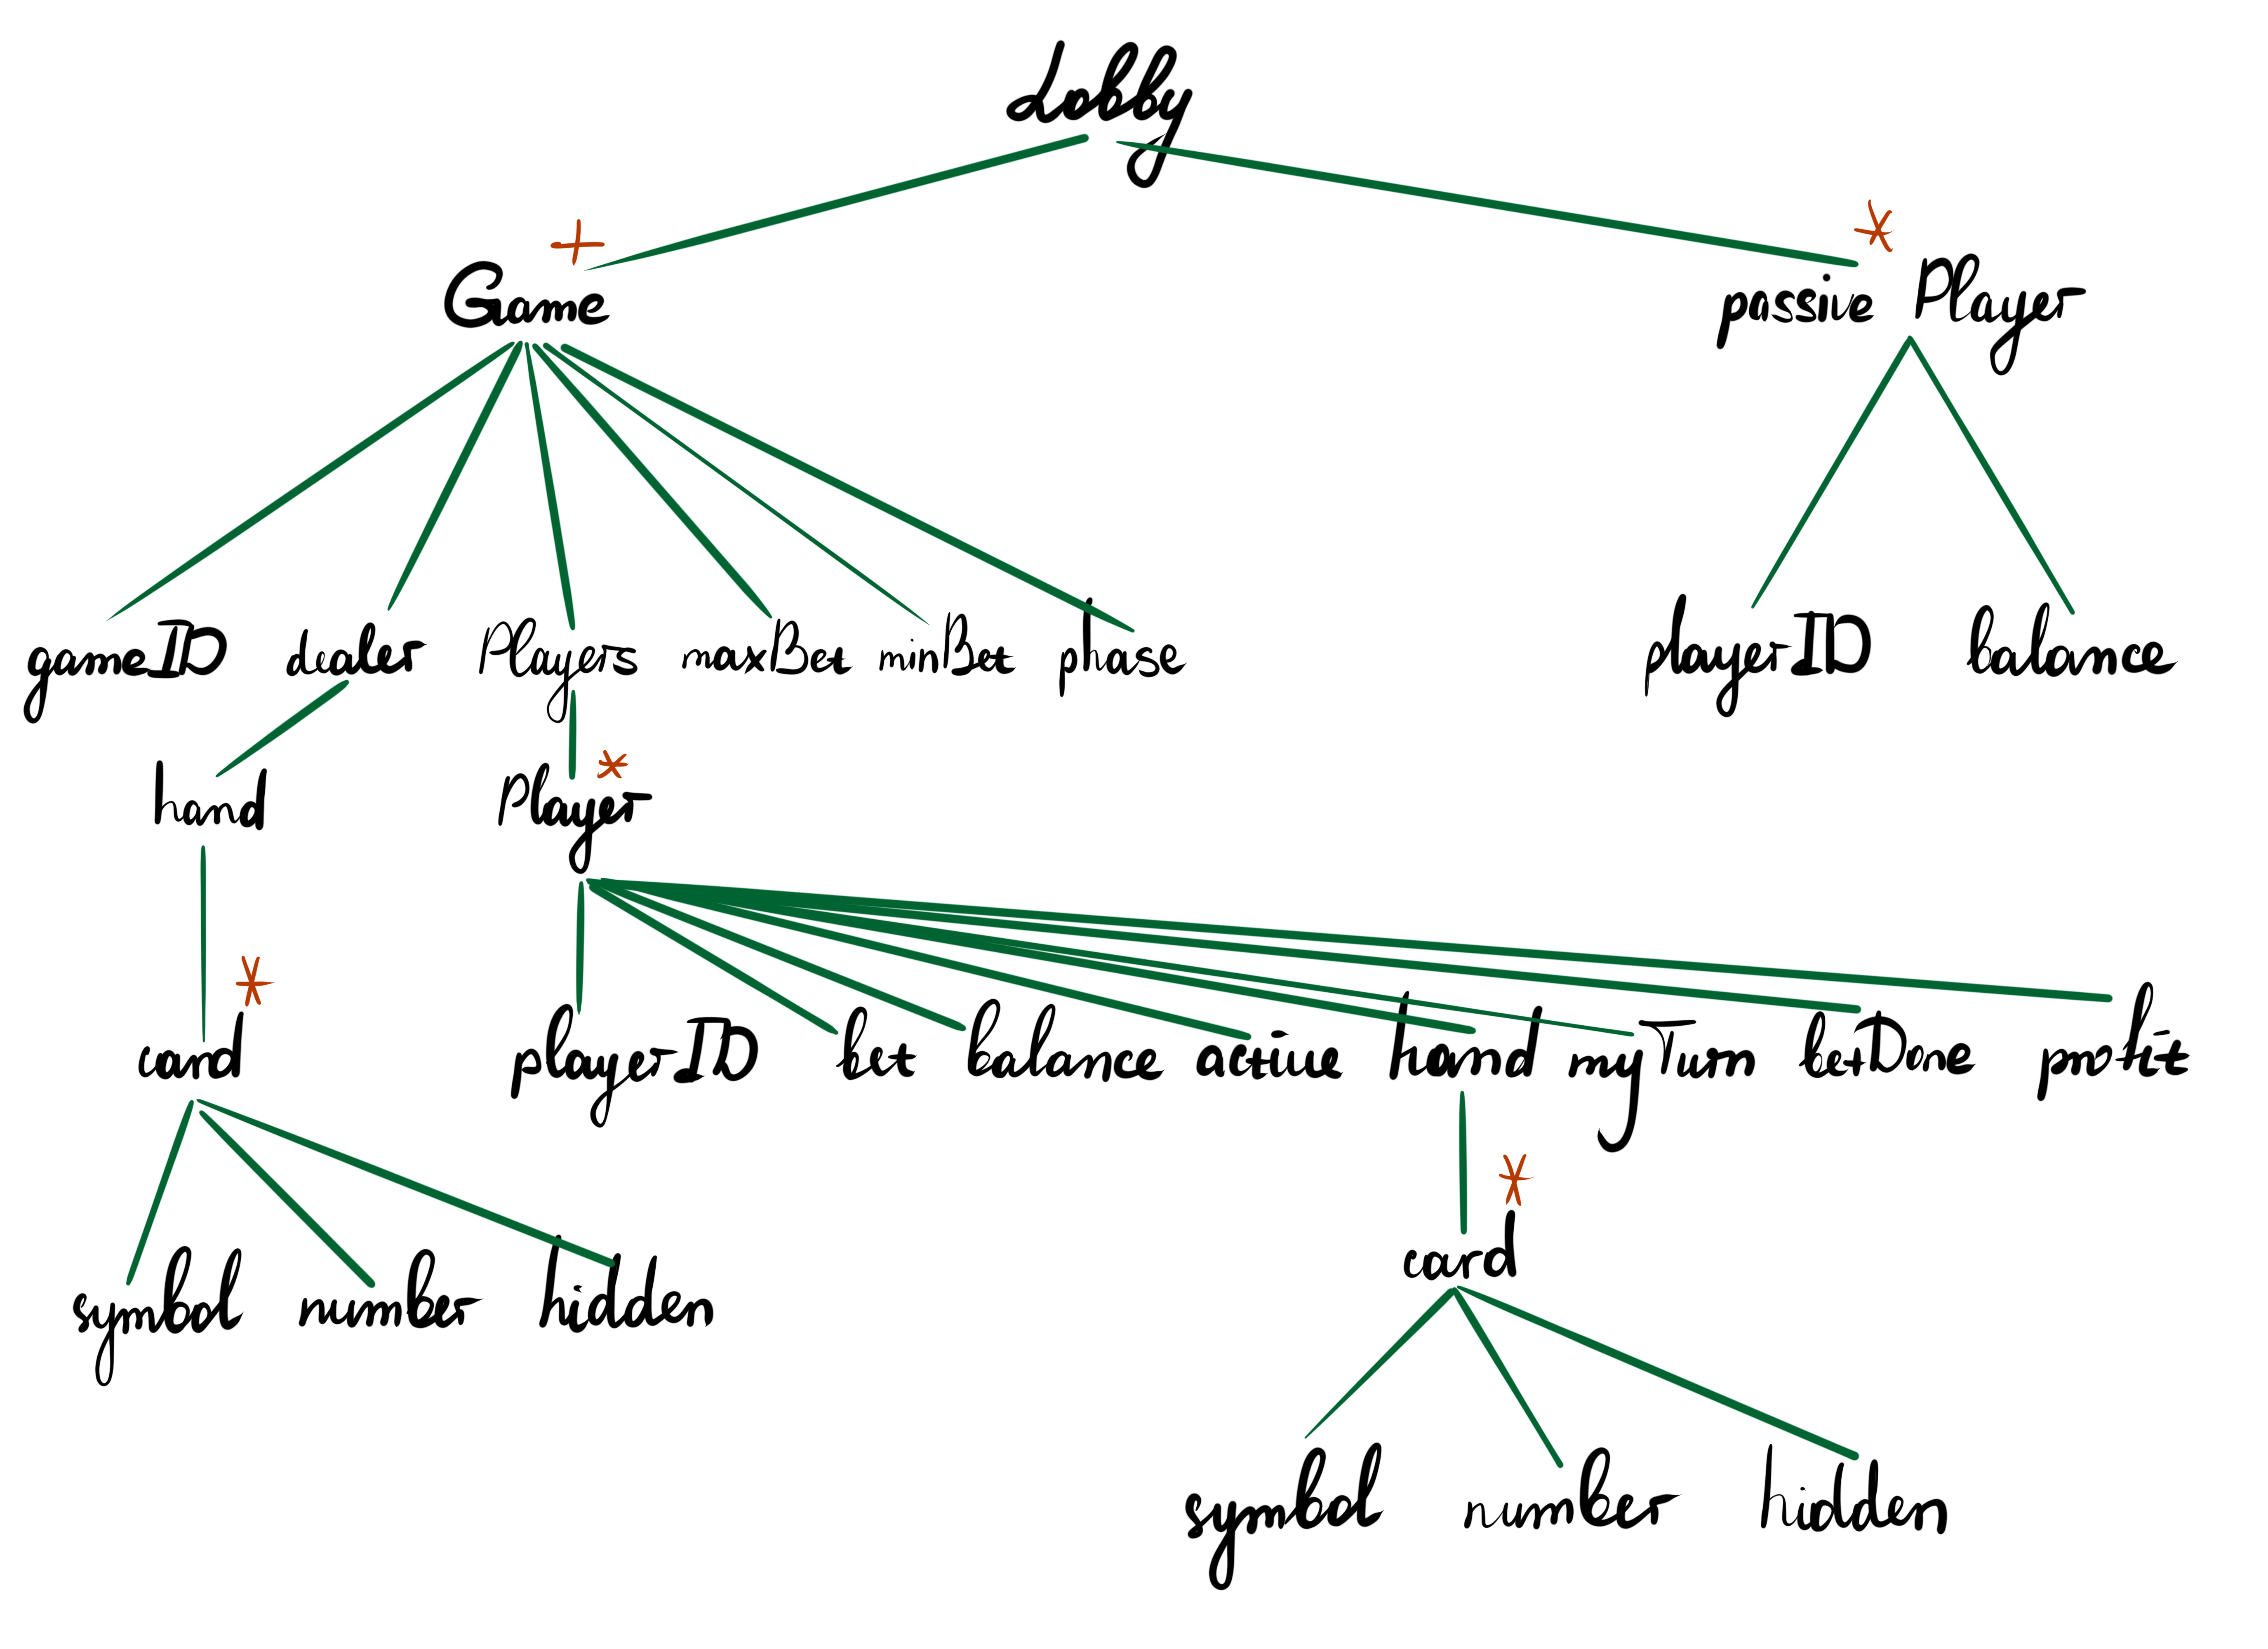 Lobby
+
*
Game
passive Player
gameID dealer Players maxBet minBet phase
playerID balance
hand
Player *
card *
playerID bet balance active hand myTurn betDone profit
*
card
symbol number hidden
symbol number hidden